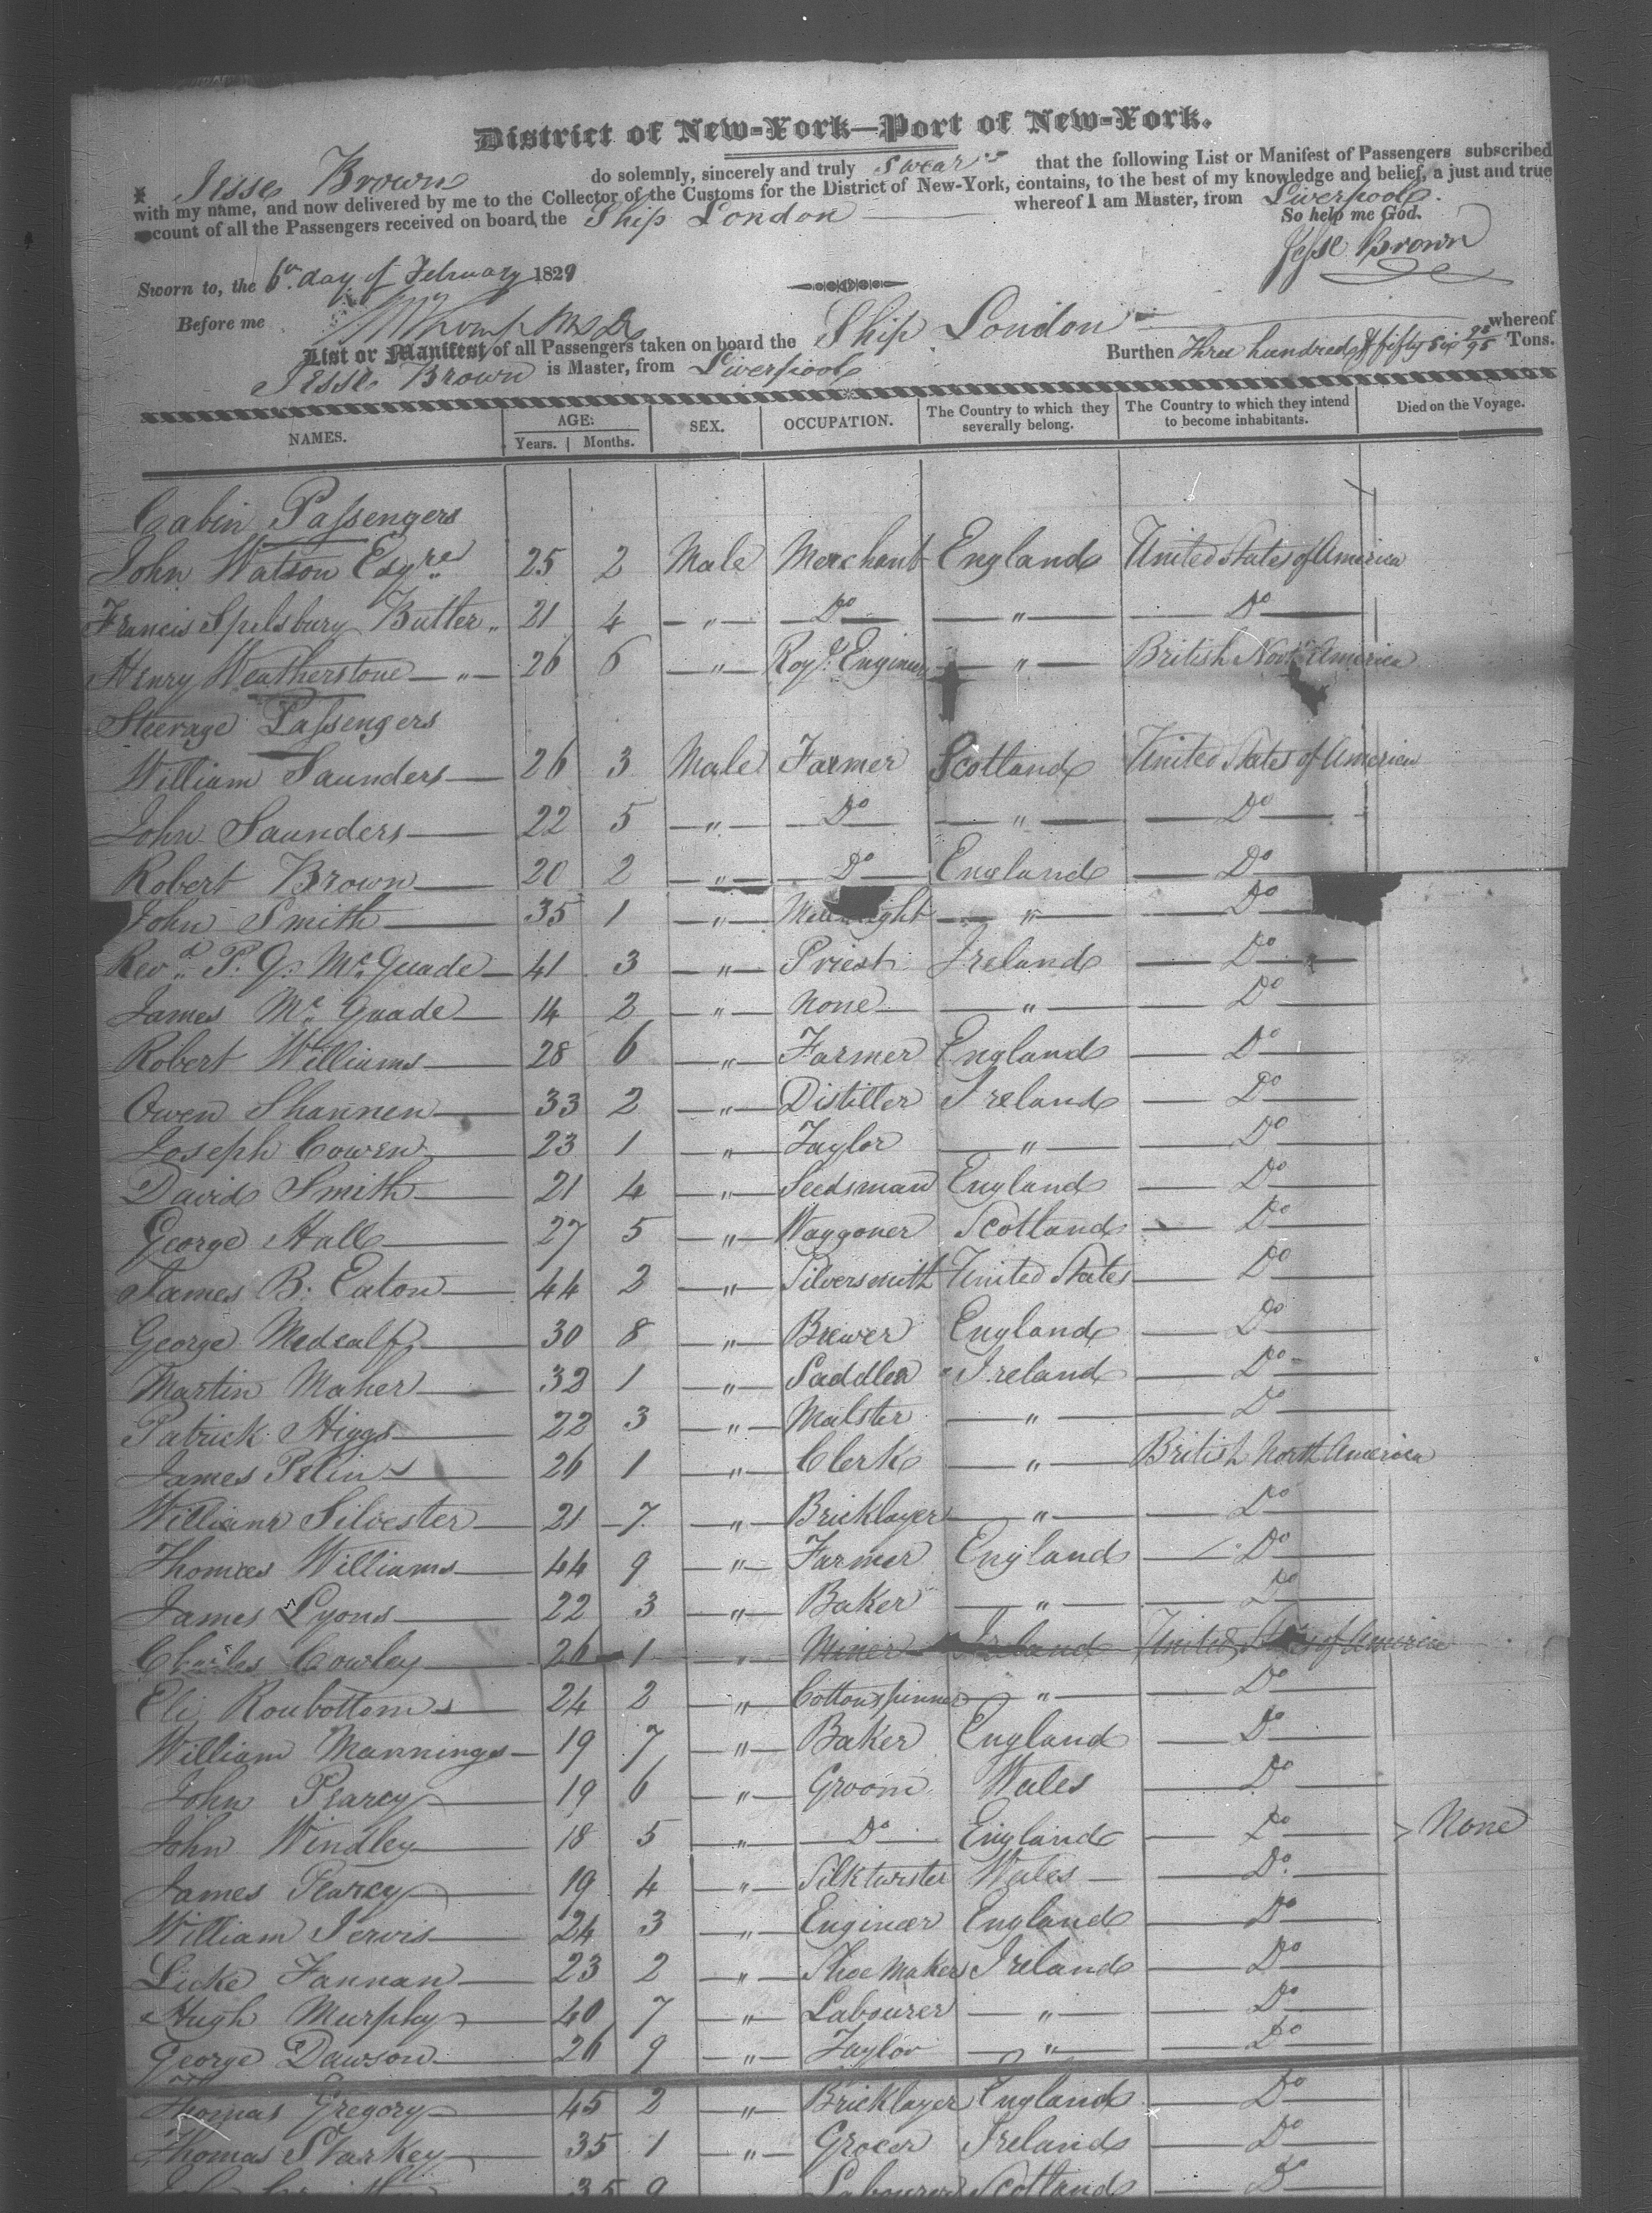 District of New-York—Port of New-York.
I Jesse Brown do solemnly, sincerely and truly Swear that the following List or Manifest of Passengers subscribed
with my name, and now delivered by me to the Collector of the Customs for the District of New-York, contains, to the best of my knowledge and belief, a just and true
account of all the Passengers received on board the Ship London whereof I am Master, from Liverpool.
So help me God.
Jesse Brown
Sworn to, the 6th day of February 1829
Before me
List or Manifest of all Passengers taken on board the Ship London whereof
Jesse Brown is Master, from Liverpool Burthen Three hundred & fifty six 92/95 Tons.
NAMES. AGE: Years. Months. SEX. OCCUPATION. The Country to which they severally belong. The Country to which they intend to become inhabitants. Died on the Voyage.
Cabin Passengers
John Watson Esqre 25 2 Male Merchant England United States of America
Francis Spelsbury Butler " 21 4 — " — Do — " — Do
Henry Weatherstone — " — 26 6 — " — Royl. Engineer — " — British North America
Steerage Passengers
William Saunders 26 3 Male Farmer Scotland United States of America
John Saunders 22 5 — " — Do — " — Do
Robert Brown 20 2 — " — Do England Do
John Smith 35 1 — " — — " — Do
Revd. P. G. Mc Guade 41 3 — " — Priest Ireland Do
James Mc Guade 14 2 — " — None — " — Do
Robert Williams 28 6 — " — Farmer England Do
Owen Shannen 33 2 — " — Distiller Ireland Do
Joseph Cowen 23 1 — " — Taylor — " — Do
David Smith 21 4 — " — Seedsman England Do
George Hall 27 5 — " — Waggoner Scotland Do
James B. Eaton 44 2 — " — Silversmith United States Do
George Medcalf 30 8 — " — Brewer England Do
Martin Maher 32 1 — " — Saddler Ireland Do
Patrick Higgs 22 3 — " — Malster — " — Do
James 26 1 — " — Clerk — " — British North America
William Silvester 21 7 — " — Bricklayer — " — Do
Thomas Williams 44 9 — " — Farmer England Do
James Lyons 22 3 — " — Baker — " — Do
Charles Cowley 26 1 " Miner Ireland United States of America
Eli Roubottom 24 2 — " — Cottonspinner — " — Do
William Mannings 19 7 — " — Baker England Do
John Pearcy 19 6 — " — Groom Wales Do
John Windley 18 5 — " — Do England Do None
James Pearcy 19 4 — " — Silktwister Wales Do
William Jervis 24 3 — " — Engineer England Do
Luke Fannan 23 2 — " — Shoe Maker Ireland Do
Hugh Murphy 40 7 — " — Labourer — " — Do
George Dawson 26 9 — " — Taylor — " — Do
Thomas Gregory 45 2 — " — Bricklayer England Do
Thomas Starkey 35 1 — " — Grocer Ireland Do
35 9 Labourer Scotland Do